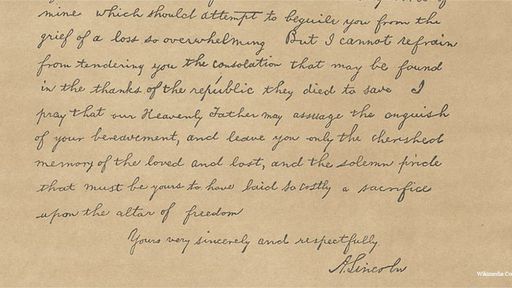 mine which should attempt to beguile you from the
grief of a loss so overwhelming But I cannot refrain
from tendering you the consolation that may be found
in the thanks of the republic they died to save I
pray that our Heavenly Father may assuage the anguish
of your bereavement, and leave you only the cherished
memory of the loved and lost, and the solemn pride
that must be yours to have laid so costly a sacrifice
upon the altar of freedom
Yours very sincerely and respectfully
A. Lincoln
Wikimedia Co